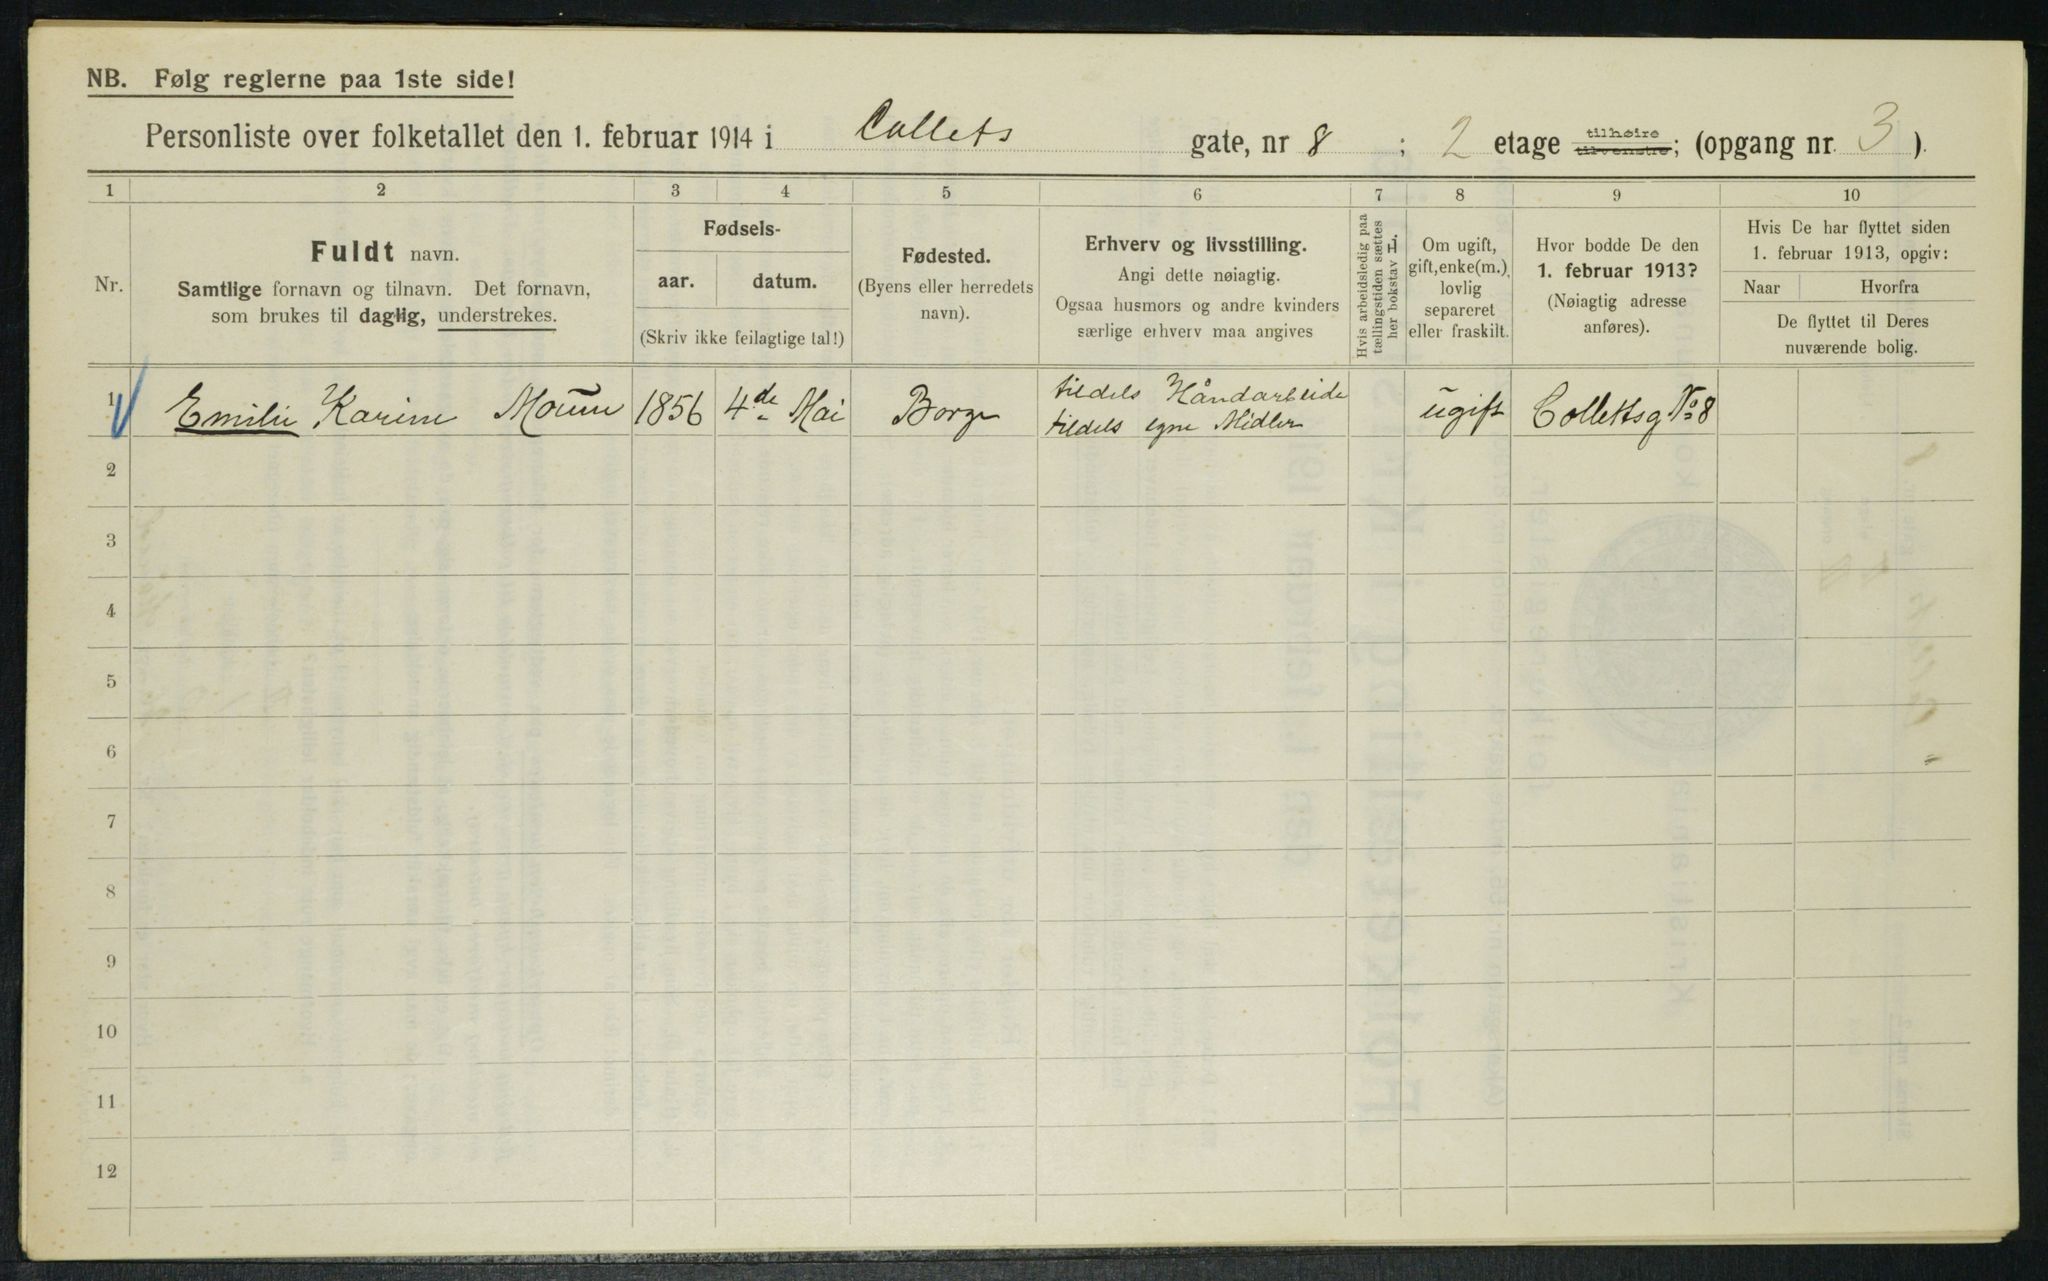 NB. Følg reglerne paa 1ste side!
Personliste over folketallet den 1. februar 1914 i Collets gate, nr 8 ; 2 etage tilhøire tilvenstre; (opgang nr. 3 ).
1 2 3 4 5 6 7 8 9 10
Nr.
Fuldt navn.
Samtlige fornavn og tilnavn. Det fornavn,
som brukes til daglig, understrekes.
Fødsels-
aar. datum.
(Skriv ikke feilagtige tal!)
Fødested.
(Byens eller herredets
navn).
Erhverv og livsstilling.
Angi dette nøiagtig.
Ogsaa husmors og andre kvinders
særlige erhverv maa angives
Hvis arbeidsledig paa
tællingstiden sættes
her bokstav L.
Om ugift,
gift, enke(m.),
lovlig
separeret
eller fraskilt.
Hvor bodde De den
1. februar 1913?
(Nøiagtig adresse
anføres).
Hvis De har flyttet siden
1. februar 1913, opgiv:
Naar Hvorfra
De flyttet til Deres
nuværende bolig.
1 Emilie Karine Moum 1856 4de Mai Borge tildels Håndarbeide
tildels egne Midler ugift Collettsg No 8
2
3
4
5
6
7
8
9
10
11
12